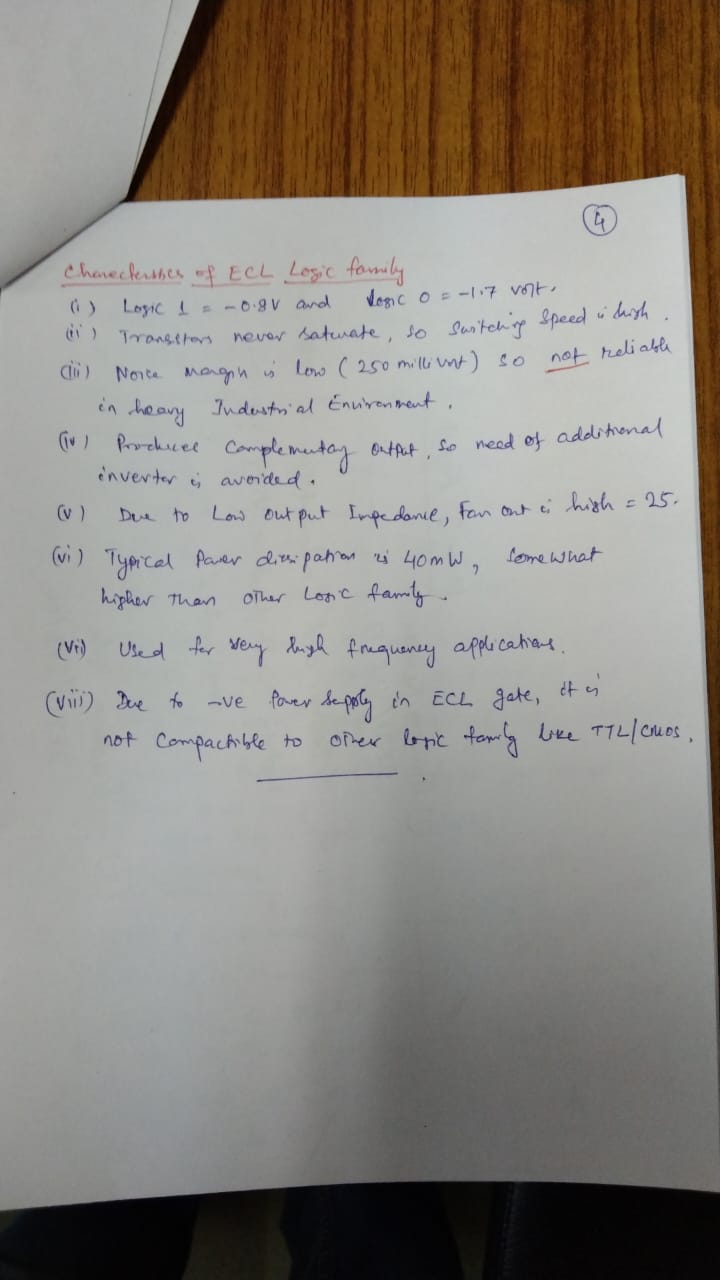 4
Charecteristics of ECL Logic family
(i) Logic 1 = -0.8V and Logic 0 = -1.7 volt.
(ii) Transistors never saturate, so Switching Speed is high.
(iii) Noice margin is low (250 millivolt) so not reliable
in heavy Industrial Environment.
(iv) Produces Complementary output, So need of additional
inverter is avoided.
(v) Due to Low output Impedance, Fan out is high = 25.
(vi) Typical Power dissipation is 40mW, Somewhat
higher Than other Logic family.
(vii) Used for very high frequency applications.
(viii) Due to -ve Power Supply in ECL gate, it is
not Compactible to other logic family like TTL/CMOS.